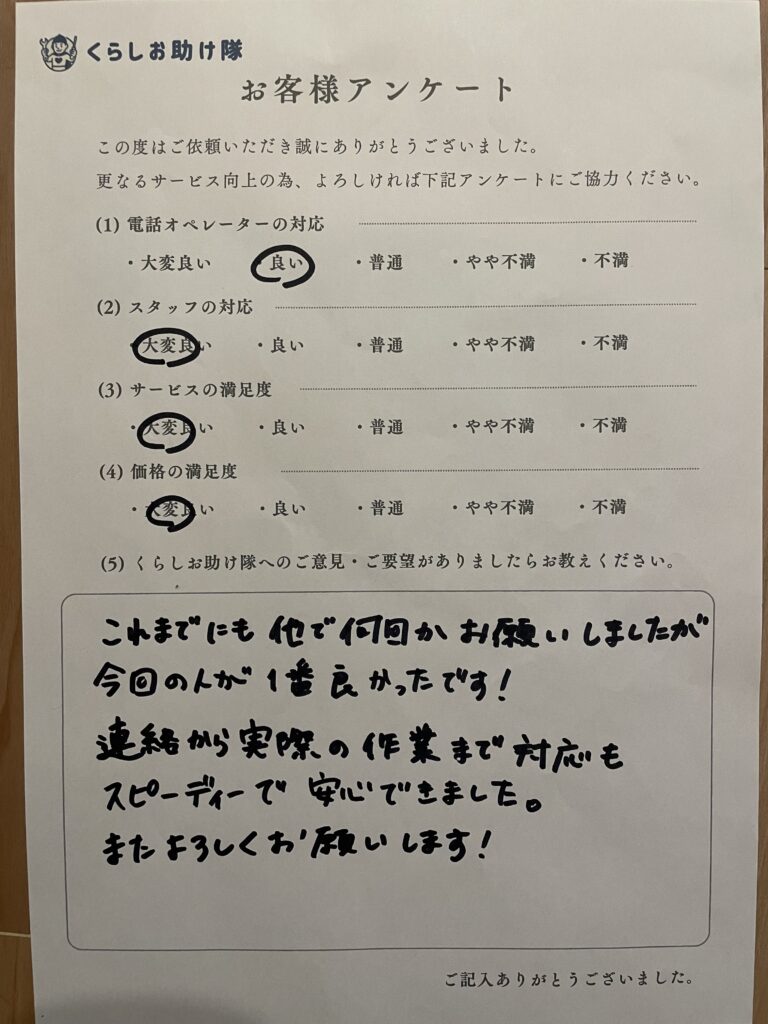 くらしお助け隊
お客様アンケート
この度はご依頼いただき誠にありがとうございました。
更なるサービス向上の為、よろしければ下記アンケートにご協力ください。
(1) 電話オペレーターの対応
・大変良い ・良い ・普通 ・やや不満 ・不満
(2) スタッフの対応
・大変良い ・良い ・普通 ・やや不満 ・不満
(3) サービスの満足度
・大変良い ・良い ・普通 ・やや不満 ・不満
(4) 価格の満足度
・大変良い ・良い ・普通 ・やや不満 ・不満
(5) くらしお助け隊へのご意見・ご要望がありましたらお教えください。
これまでにも他で何回かお願いしましたが
今回の人が1番良かったです!
連絡から実際の作業まで対応も
スピーディーで安心できました。
またよろしくお願いします!
ご記入ありがとうございました。